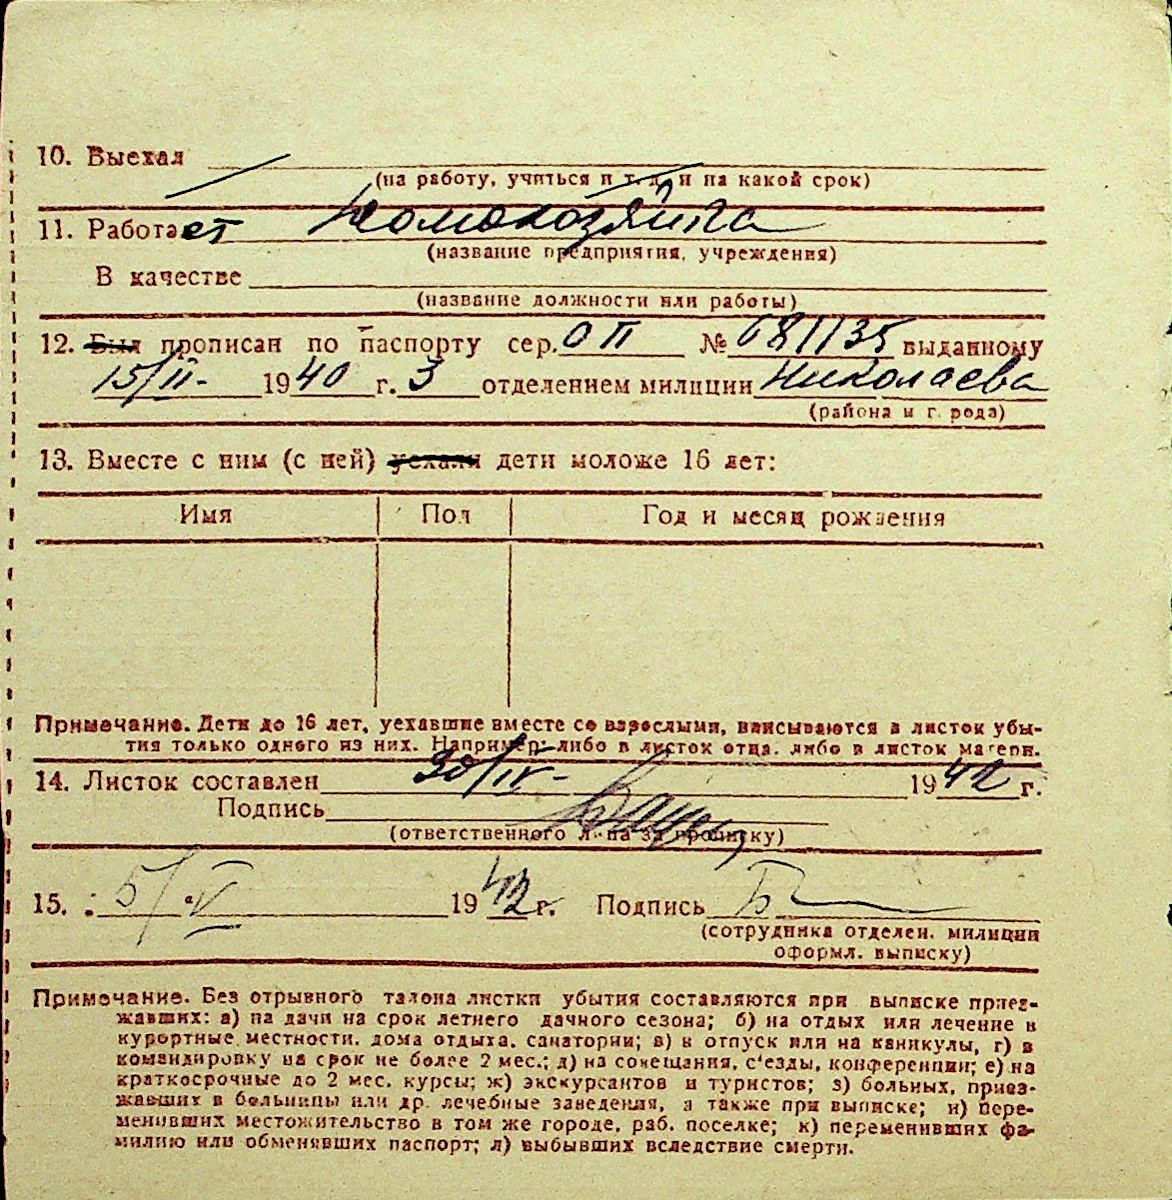 10. Выехал
(на работу, учиться и т. д. и на какой срок)
11. Работает Домохозяйка
(название предприятия, учреждения)
В качестве
(название должности или работы)
12. Был прописан по паспорту сер. ОП № 681135 выданному
15/II- 1940 г. 3 отделением милиции Николаева
(района и города)
13. Вместе с ним (с ней) уехали дети моложе 16 лет:
Имя Пол Год и месяц рождения
Примечание. Дети до 16 лет, уехавшие вместе со взрослыми, вписываются в листок убы-
тия только одного из них. Например: либо в листок отца, либо в листок матери.
14. Листок составлен 30/IV- 1942 г.
Подпись
(ответственного лица за прописку)
15. 5/V 1942 г. Подпись
(сотрудника отделен. милиции
оформл. выписку)
Примечание. Без отрывного талона листки убытия составляются при выписке приез-
жавших: а) на дачи на срок летнего дачного сезона; б) на отдых или лечение в
курортные местности, дома отдыха, санатории; в) в отпуск или на каникулы, г) в
командировку на срок не более 2 мес.; д) на совещания, с'езды, конференции; е) на
краткосрочные до 2 мес. курсы; ж) экскурсантов и туристов; з) больных, приез-
жавших в больницы или др. лечебные заведения, а также при выписке; и) пере-
менивших местожительство в том же городе, раб. поселке; к) переменивших фа-
милию или обменявших паспорт; л) выбывших вследствие смерти.